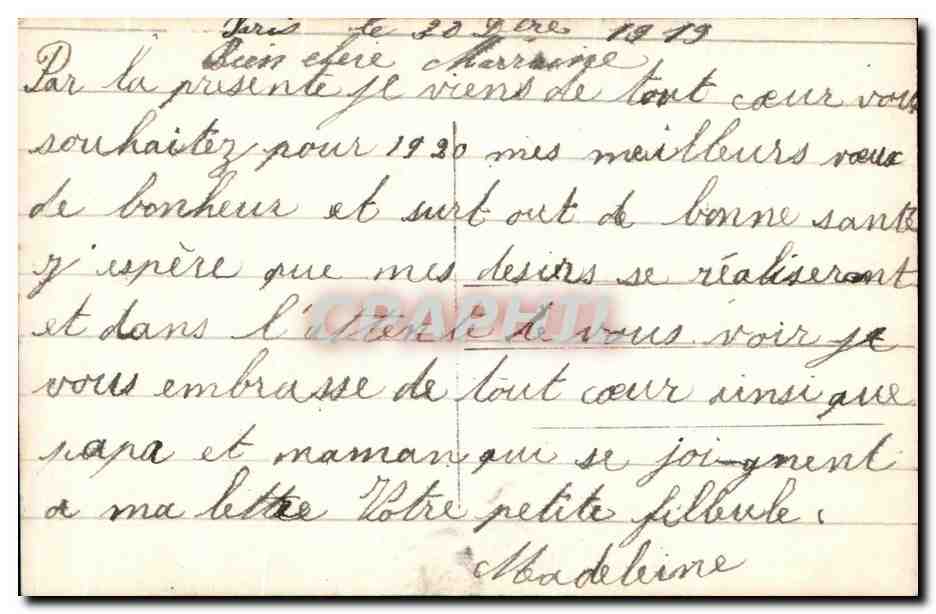 Paris le 20 Dbre 1919
Bien chère Marraine
Par la présente je viens de tout cœur vous
souhaitez pour 1920 mes meilleurs vœux
de bonheur et surtout de bonne santé
j'espère que mes desirs se réaliseront
et dans l'attente de vous voir je
vous embrasse de tout cœur ainsi que
papa et maman qui se joi-gnent
a ma lettre Votre petite filleule.
Madeleine
CPAPHIL